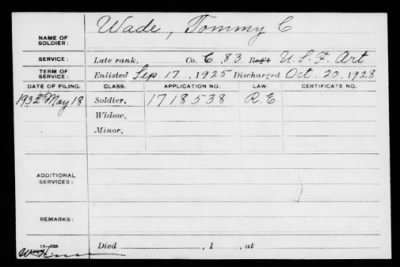 NAME OF SOLDIER: Wade, Tommy C
SERVICE: Late rank, Co. C 83 Reg't U.S.F. Art
TERM OF SERVICE: Enlisted Sep 17, 1925 Discharged Oct. 20, 1928
DATE OF FILING. CLASS. APPLICATION NO. LAW. CERTIFICATE NO.
1932 May 18 Soldier, 1718538 R.E.
Widow,
Minor,
ADDITIONAL SERVICES:
REMARKS:
Died , 1 , at